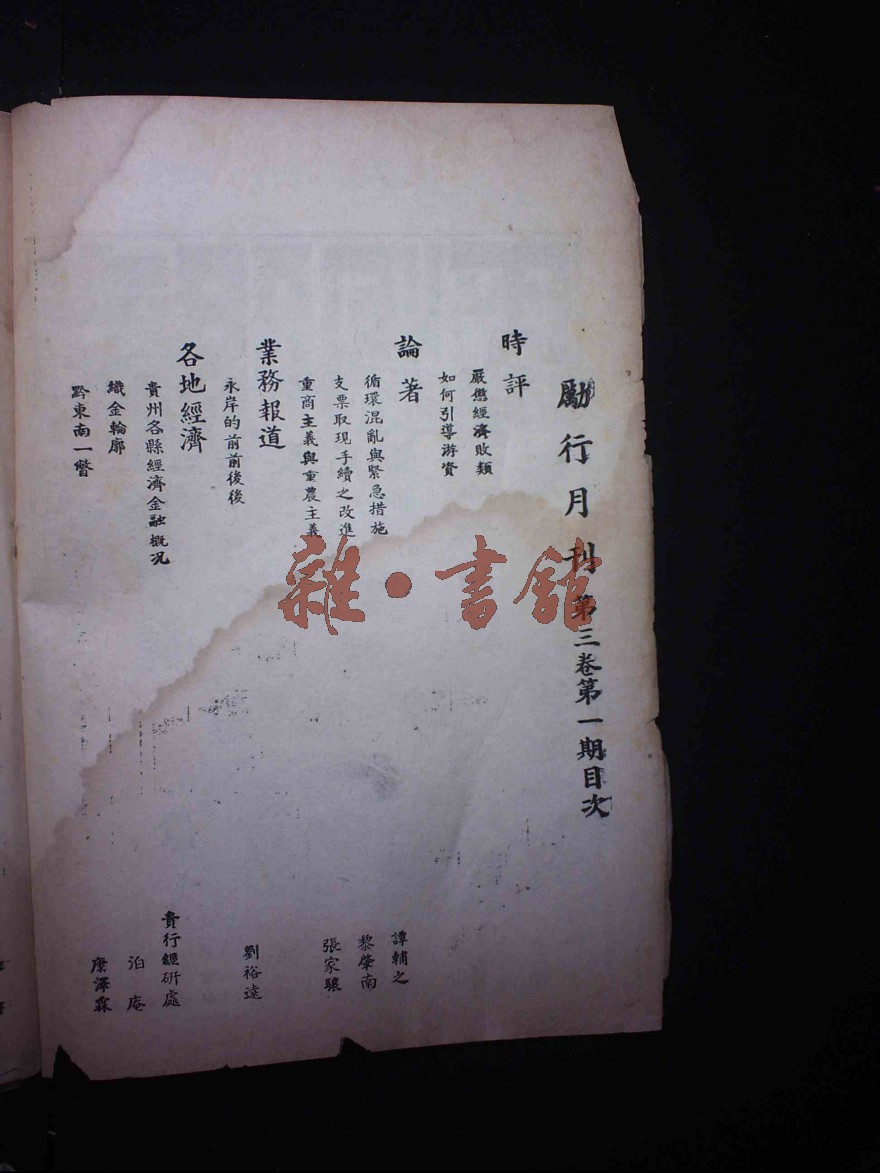 勵行月刊 第三卷第一期目次
時評
嚴懲經濟敗類
如何引導游資
論著
循環混亂與緊急措施 譚輔之
支票取現手續之改進 黎肇南
重商主義與重農主義 張家驤
業務報道
永岸的前前後後 劉裕遠
各地經濟
貴州各縣經濟金融概况 貴行經研處
織金輪廓 泊庵
黔東南一瞥 唐澤霖
雜·書館